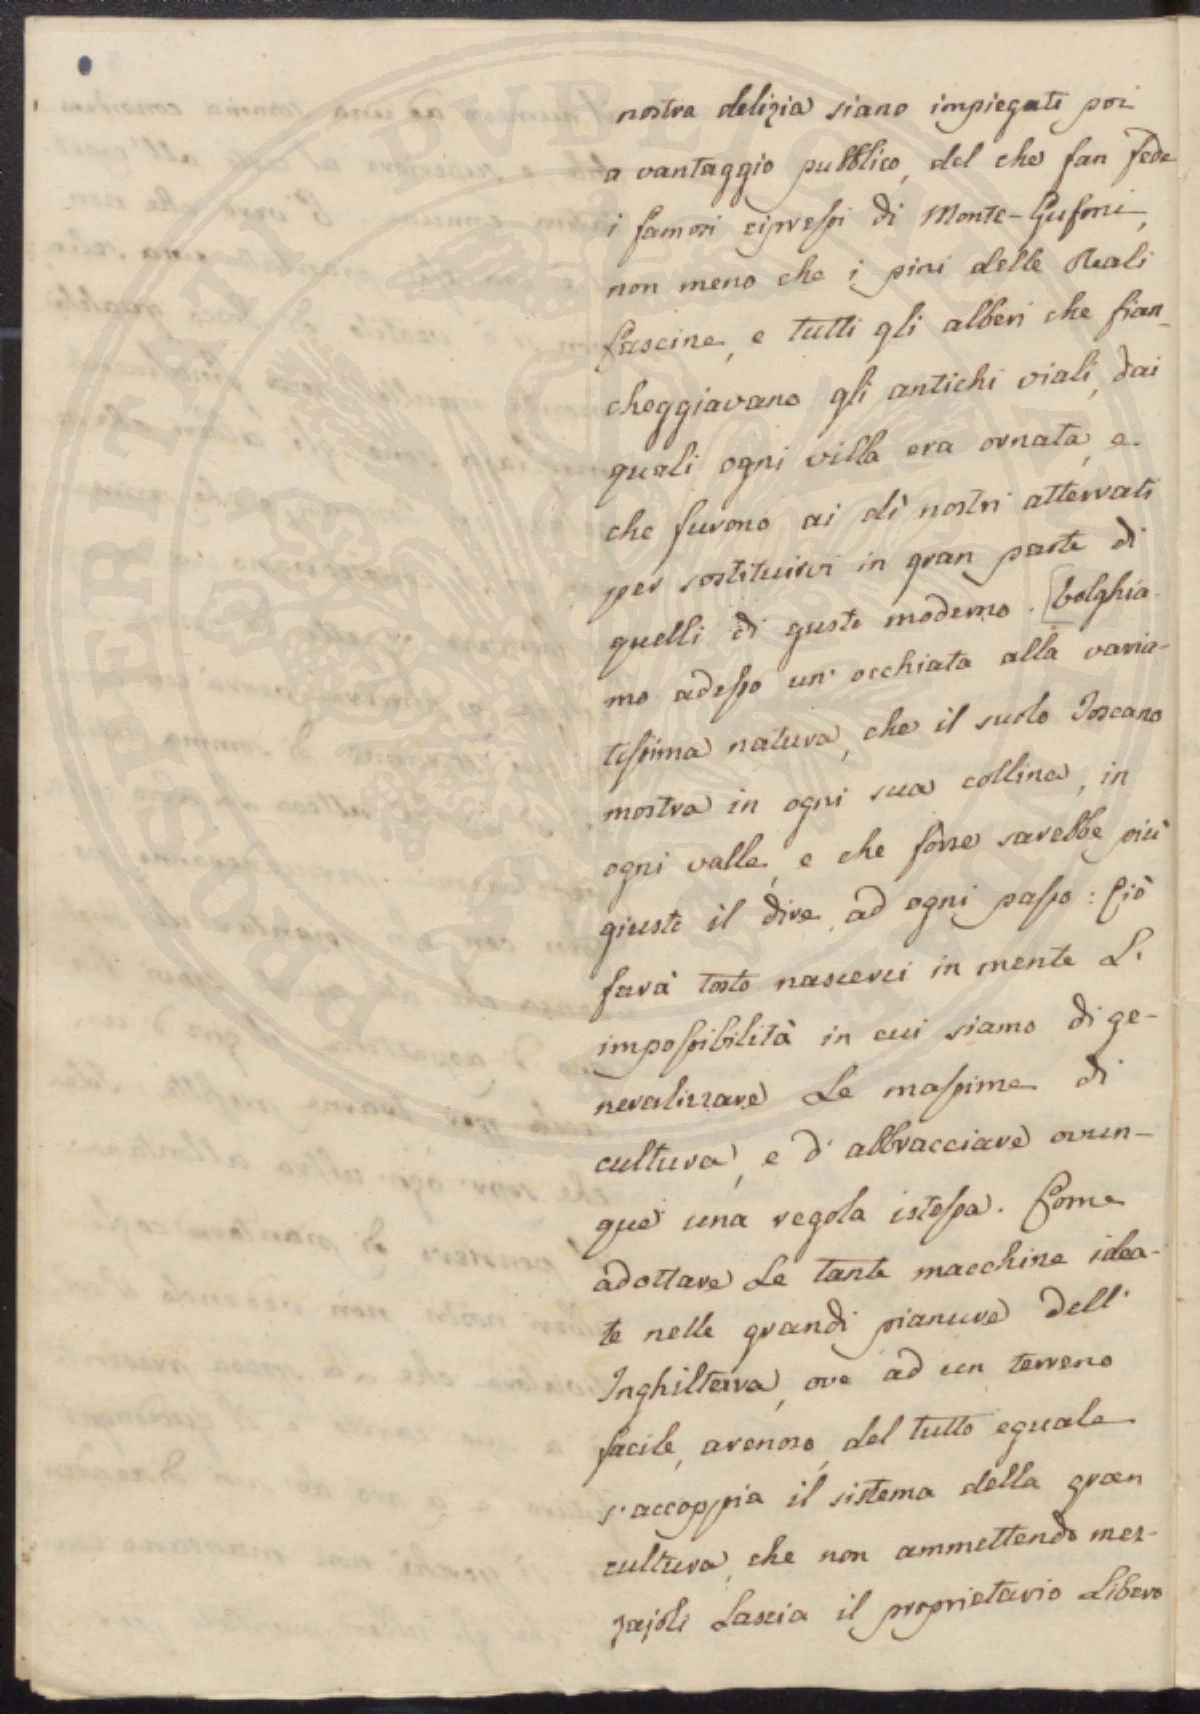 nostra delizia siano impiegati poi
a vantaggio pubblico, del che fan fede
i famosi cipressi di Monte-Gufoni,
non meno che i pini delle Reali
Cascine, e tutti gli alberi che fian-
cheggiavano gli antichi viali, dai
quali ogni villa era ornata, e
che furono ai dì nostri atterrati
per sostituirvi in gran parte di
quelli di gusto moderno. [Volghia-
mo adesso un' occhiata alla varia-
tissima natura, che il suolo Toscano
mostra in ogni sua collina, in
ogni valle, e che forse sarebbe più
giusto il dire, ad ogni passo: Ciò
farà tosto nascerci in mente L'
impossibilità in cui siamo di ge-
neralizzare Le massime di
cultura, e d' abbracciare ovun-
que una regola istessa. Come
adottare Le tante macchine idea-
te nelle grandi pianure dell'
Inghilterra, ove ad un terreno
facile, arenoso, del tutto eguale
s'accoppia il sistema della gran
cultura, che non ammettendo mez-
zajoli Lascia il proprietario Libero
PROSPERITATI PUBLICAE